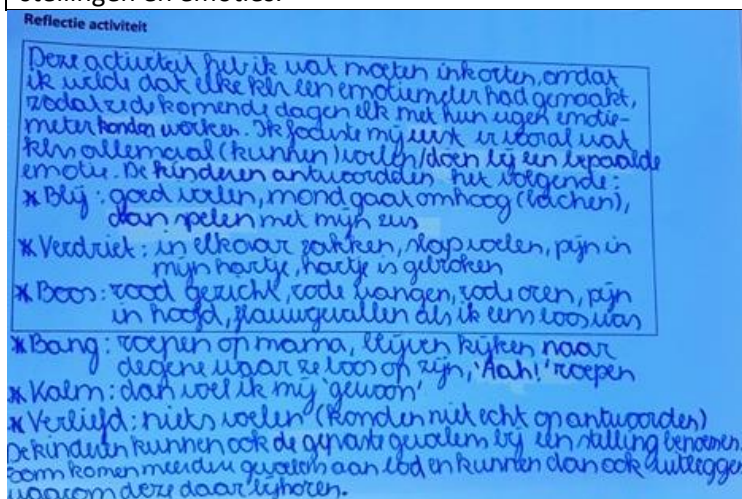 stellingen en emoties.
Reflectie activiteit
Deze activiteit heb ik wat moeten inkorten, omdat
ik wilde dat elke klr een emotiemeter had gemaakt,
zodat ze de komende dagen elk met hun eigen emotie-
meter konden werken. Ik focuste mij eerst vooral wat
klrs allemaal (kunnen) voelen/doen bij een bepaalde
emotie. De kinderen antwoordden het volgende:
* Blij: goed voelen, mond gaat omhoog (lachen),
dan spelen met mijn zus
* Verdriet: in elkaar zakken, slap voelen, pijn in
mijn hartje, hartje is gebroken
* Boos: rood gezicht, rode wangen, rode oren, pijn
in hoofd, flauwgevallen als ik eens boos was
* Bang: roepen op mama, blijven kijken naar
degene waar ze boos op zijn, 'Aah!' roepen
* Kalm: dan voel ik mij 'gewoon'
* Verliefd: niets voelen (konden niet echt op antwoorden)
De kinderen kunnen ook de gepaste gevoelens bij een stelling benoemen.
Soms komen meerdere gevoelens aan bod en kunnen dan ook uitleggen
waarom deze daar bijhoren.